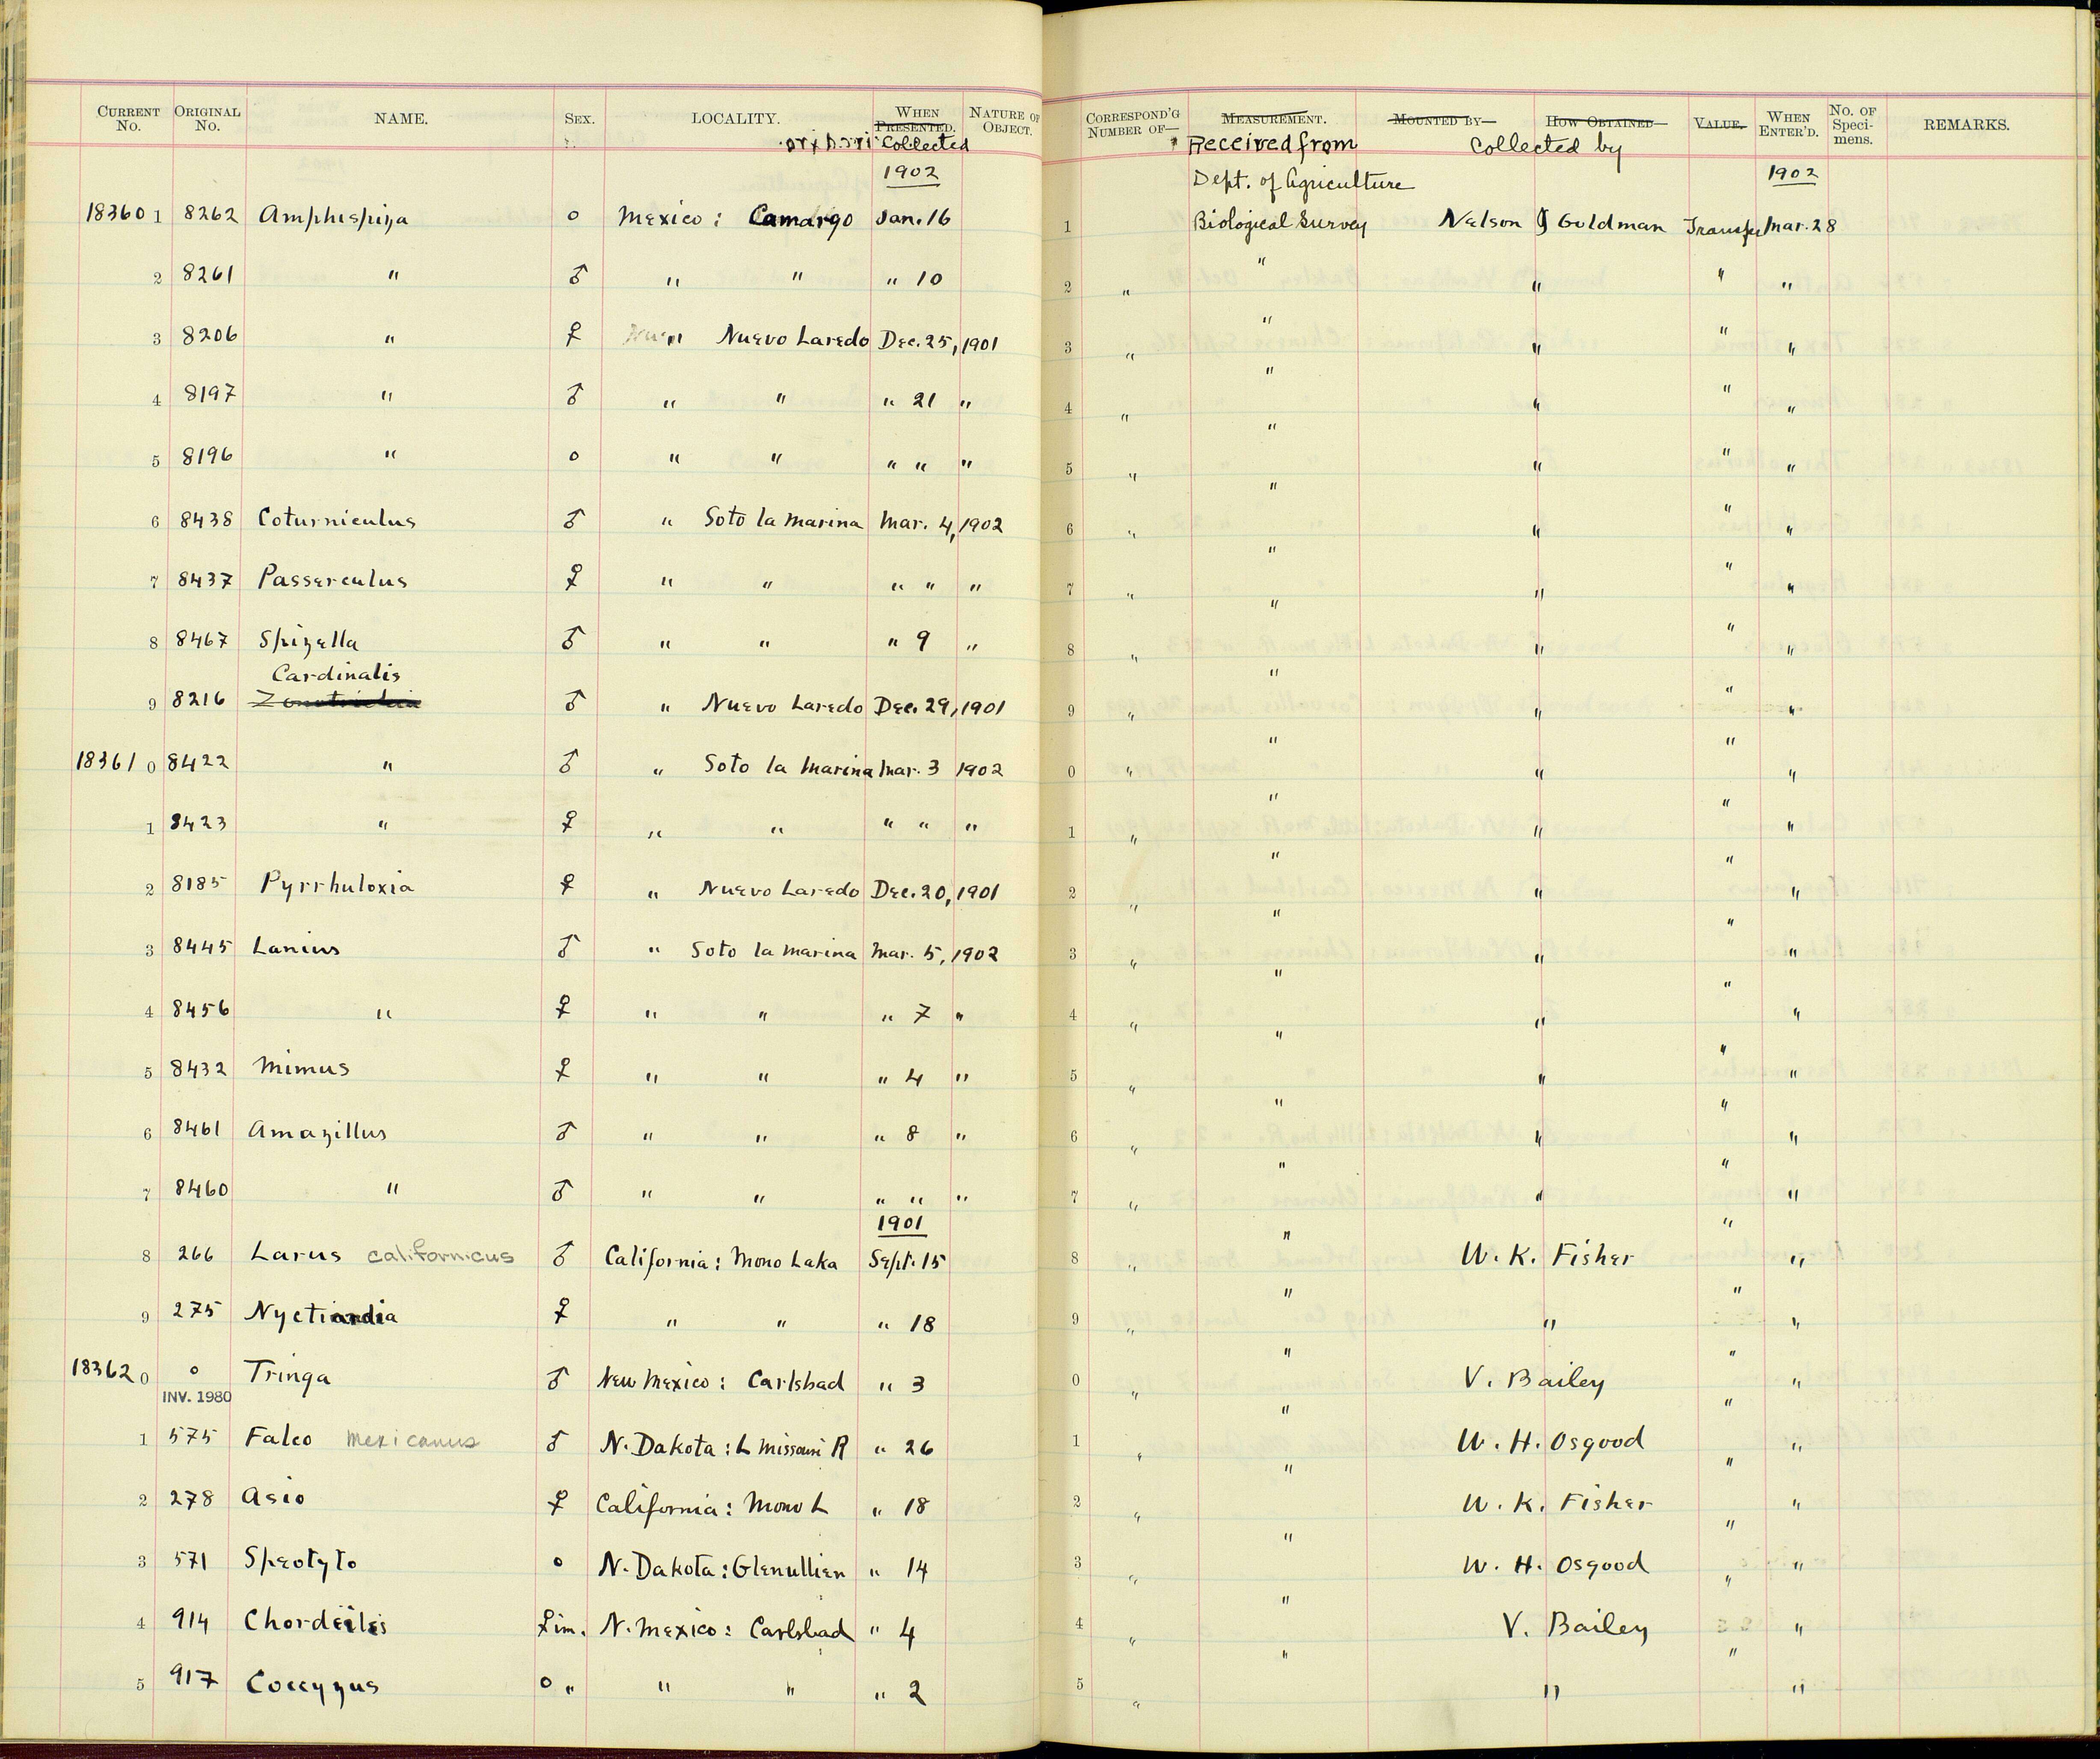 CURRENT No. ORIGINAL No. NAME. SEX. LOCALITY. WHEN PRESENTED. NATURE OF OBJECT. CORRESPOND'G NUMBER OF— MEASUREMENT. MOUNTED BY— HOW OBTAINED— VALUE. WHEN ENTER'D. No. OF Speci-mens. REMARKS.
Collected Received from Collected by
1902 Dept. of Agriculture 1902
18360 1 8262 Amphispiza o Mexico: Camargo Jan. 16 1 Biological Survey Nelson & Goldman Transfer Mar. 28
2 8261 " ♂ " " " 10 2 " " " " "
3 8206 " ♀ " Nuevo Laredo Dec. 25, 1901 3 " " " " "
4 8197 " ♂ " " " 21 " 4 " " " " "
5 8196 " o " " " " " 5 " " " " "
6 8438 Coturniculus ♂ " Soto la Marina Mar. 4, 1902 6 " " " " "
7 8437 Passerculus ♀ " " " " " 7 " " " " "
8 8467 Spizella ♂ " " " 9 " 8 " " " " "
Cardinalis
9 8216 Zonotrichia ♂ " Nuevo Laredo Dec. 29, 1901 9 " " " " "
18361 0 8422 " ♂ " Soto la Marina Mar. 3 1902 0 " " " " "
1 8423 " ♀ " " " " " 1 " " " " "
2 8185 Pyrrhuloxia ♀ " Nuevo Laredo Dec. 20, 1901 2 " " " " "
3 8445 Lanius ♂ " Soto la Marina Mar. 5, 1902 3 " " " " "
4 8456 " ♀ " " " 7 " 4 " " " " "
5 8432 Mimus ♀ " " " 4 " 5 " " " " "
6 8461 Amazillus ♂ " " " 8 " 6 " " " " "
7 8460 " ♂ " " " " " 7 " " " " "
1901
8 266 Larus californicus ♂ California: Mono Lake Sept. 15 8 " " W. K. Fisher " "
9 275 Nyctiardia ♀ " " " 18 9 " " " " "
18362 0 o Tringa ♂ New Mexico: Carlsbad " 3 0 " " V. Bailey " "
INV. 1980
1 575 Falco mexicanus ♂ N. Dakota: L Missouri R " 26 1 " " W. H. Osgood " "
2 278 Asio ♀ California: Mono L " 18 2 " " W. K. Fisher " "
3 571 Speotyto o N. Dakota: Glenullien " 14 3 " " W. H. Osgood " "
4 914 Chordeiles ♀ im. N. Mexico: Carlsbad " 4 4 " " V. Bailey " "
5 917 Coccyzus o " " " " 2 5 " " "